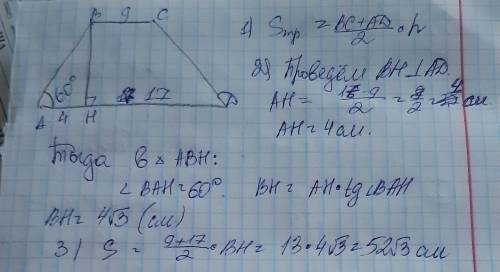 B 9 C
60°
A 4 H 17 D
1) Sтр = BC+AD/2 · h
2) Проведём BH⊥AD.
AH = -9/2 = 8/2 = 4 см
AH = 4 см.
Тогда в △ ABH:
∠BAH = 60°. BH = AH · tg∠BAH
BH = 4√3 (см)
3) S = 9+17/2 · BH = 13 · 4√3 = 52√3 см